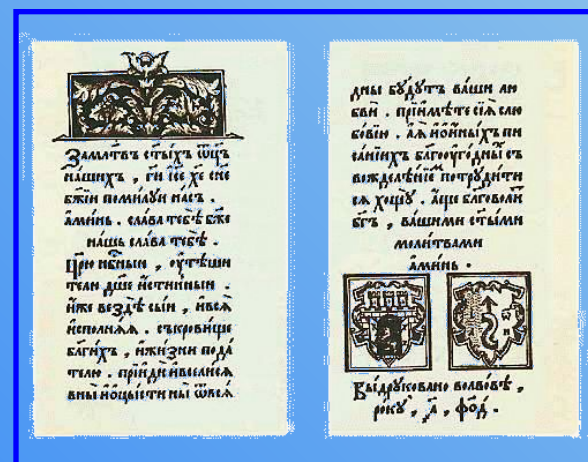 Замл҃твъ ст҃ыхъ ѿц҃ъ
нашихъ , гн҃ ісе҃ хе҃ сн҃е
бж҃їи помилуи насъ .
а҆минь . слава тебѣ бж҃е
нашь слава тебѣ .
Цр҃ю нб҃ныи , оутѣши
телю дш҃е и҆стинныи .
и҆же вездѣ сыи , и҆всѧ
и҆сполнѧѧ . съкровище
бл҃гихъ , и҆жизни пода
телю . прїиди и҆вселисѧ
вны и҆ѡцысти ны ѿвсеѧ
дны бу́дутъ ва́ши лю
бви . прїимѣ́те сїѧ̀ слю
бовїю . а҆ѧ и҆ѡ҆и́ныхъ пи
са́нїихъ бл҃гооуго́дныⷯ съ
вождєлѣ́нїеⷨ потруди́ти
сѧ хощу̀ . а҆́ще бл҃говоли́ⷮ
бг҃ъ , ва́шими ст҃ы́ми
моли́твами
а҆ми́нь .
Выдруковано волвовѣ ,
року , ҂а҃ , фо҃д .